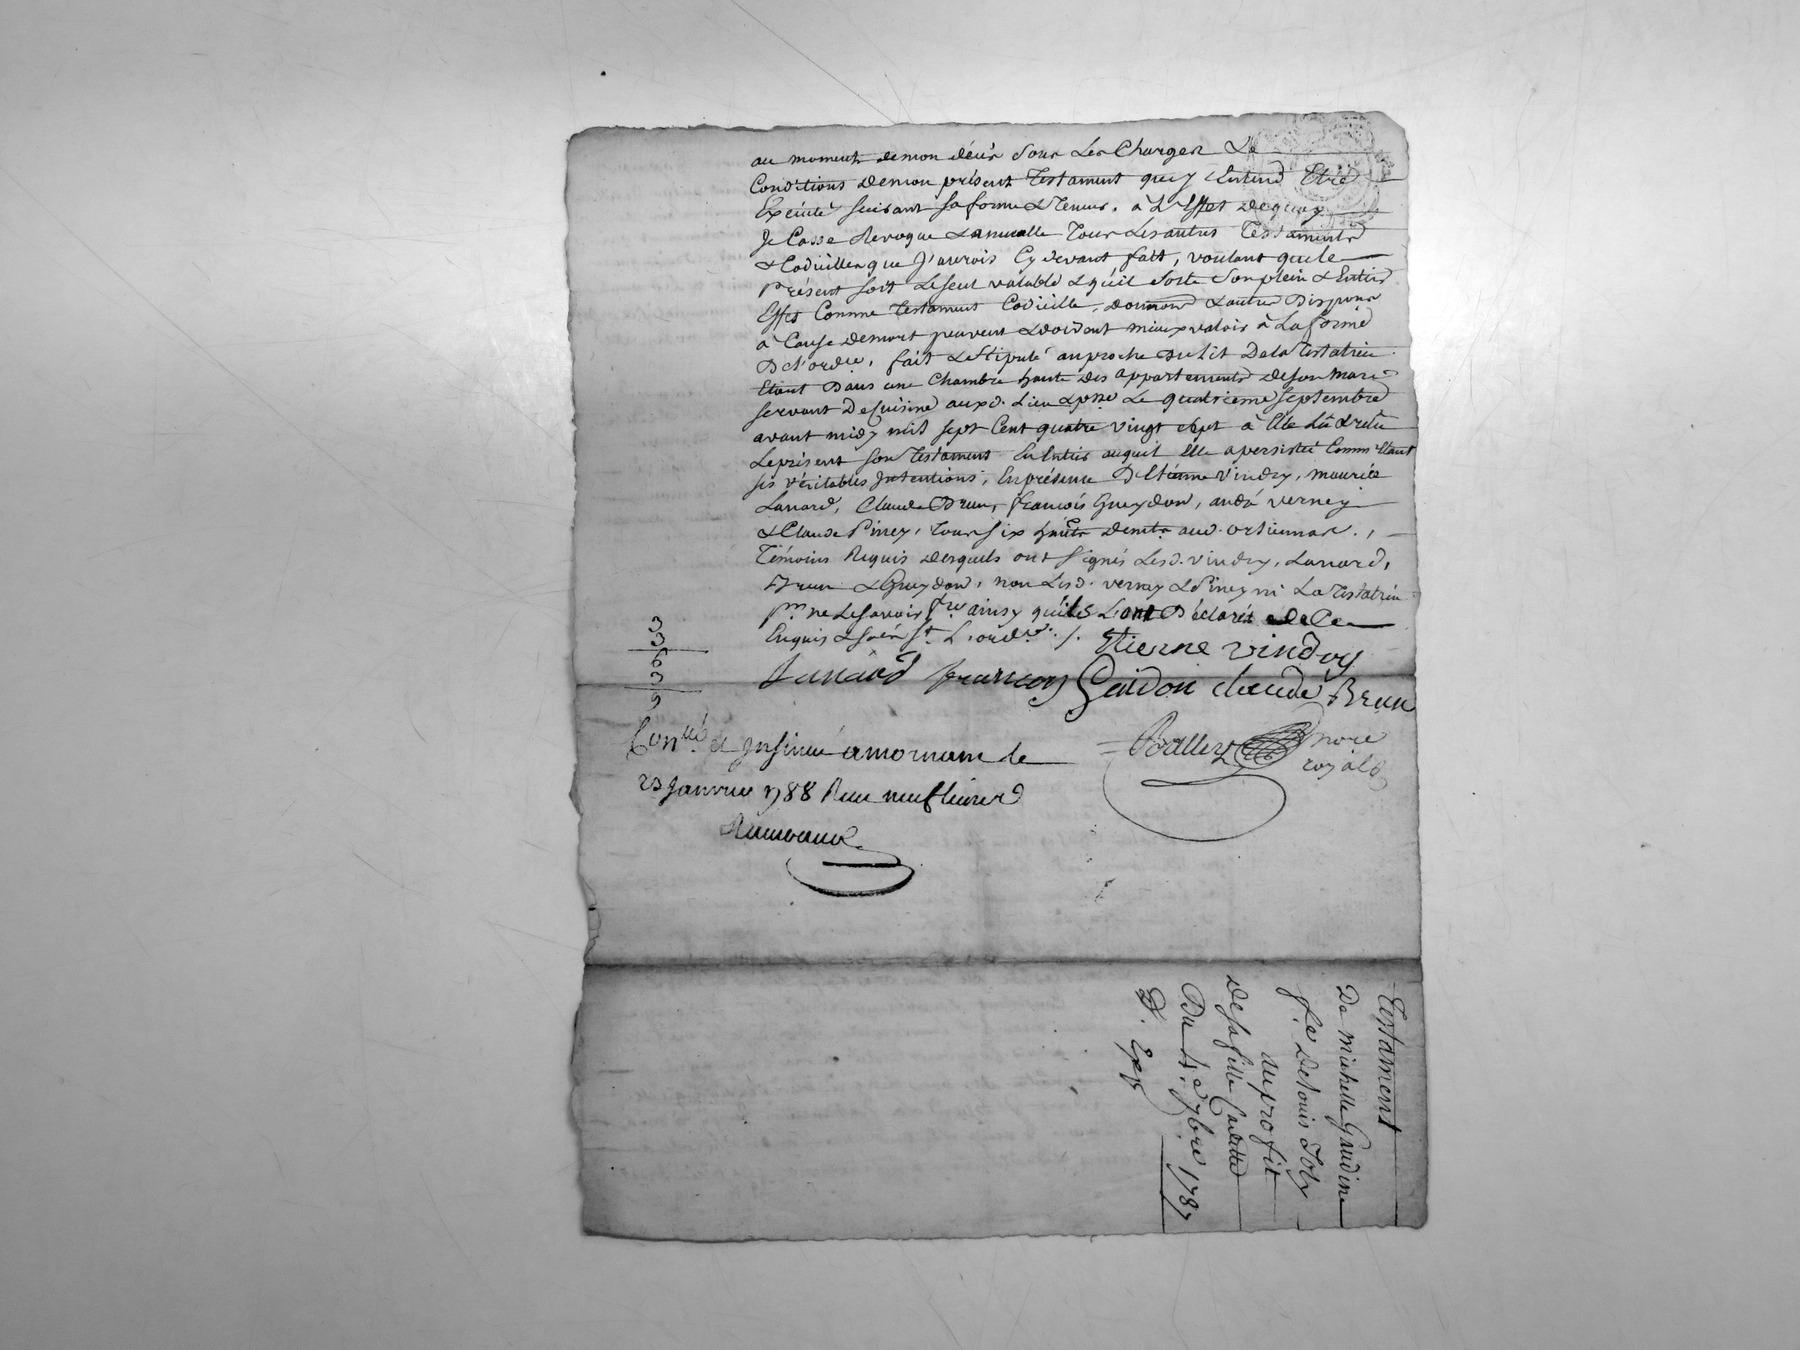 au moment de mon décès sous les Charges &
Conditions de mon présent Testament que j'Entend Etre
Exécuté suivant sa forme & Teneur. à L'Effet dequoy
Je Casse Revoque & annulle Tous les autres Testaments
& Codicilles que J'aurois Cy devant fait, voulant que le
Présent soit le seul valable & qu'il sorte son plein & Entier
Effet Comme Testament Codicille, donnaon & autres Dispons
à Cause de mort peuvent & doivent mieux valoir à La forme
De L'ordce, fait & stipulé au proche du lit De la Testatrice
Etant Dans une Chambre haute des appartements de son Mari
servant de Cuisine aux d. Lieu & psse Le quatrieme septembre
avant midy mil sept Cent quatre vingt sept à Elle Lû & relû
Le présent son Testament En Entier auquel Elle a persisté Comm' Etant
ses véritables Intentions, En présence D'Etienne Vindry, maurice
Lanard, Claude Brun, françois Gueydon, andré verney
& Claude Piney, tous six habts demts aud. orliennas.,
Témoins Requis desquels ont signés Lesd. vindry, Lanard,
Brun & Gueydon, non Lesd. verney & Piney ni La Testatrice
pr. ne Le savoir fre ainsy qu'ils L'ont Déclarés de Ce
Enquis & st. L'ordce. /.
3
3
6
3
9
Etienne vindry
Lanard francois Gaidon claude Brun
Conlé & Insinué a mornant le
23 Janvier 1788 Reçu neuf livres
nore
royald
Testament
De Michelle Gaudine
fe. De Louis Joly
au profit
De sa fille Claudette
Du 4e. 7bre 1787
D. Exp.